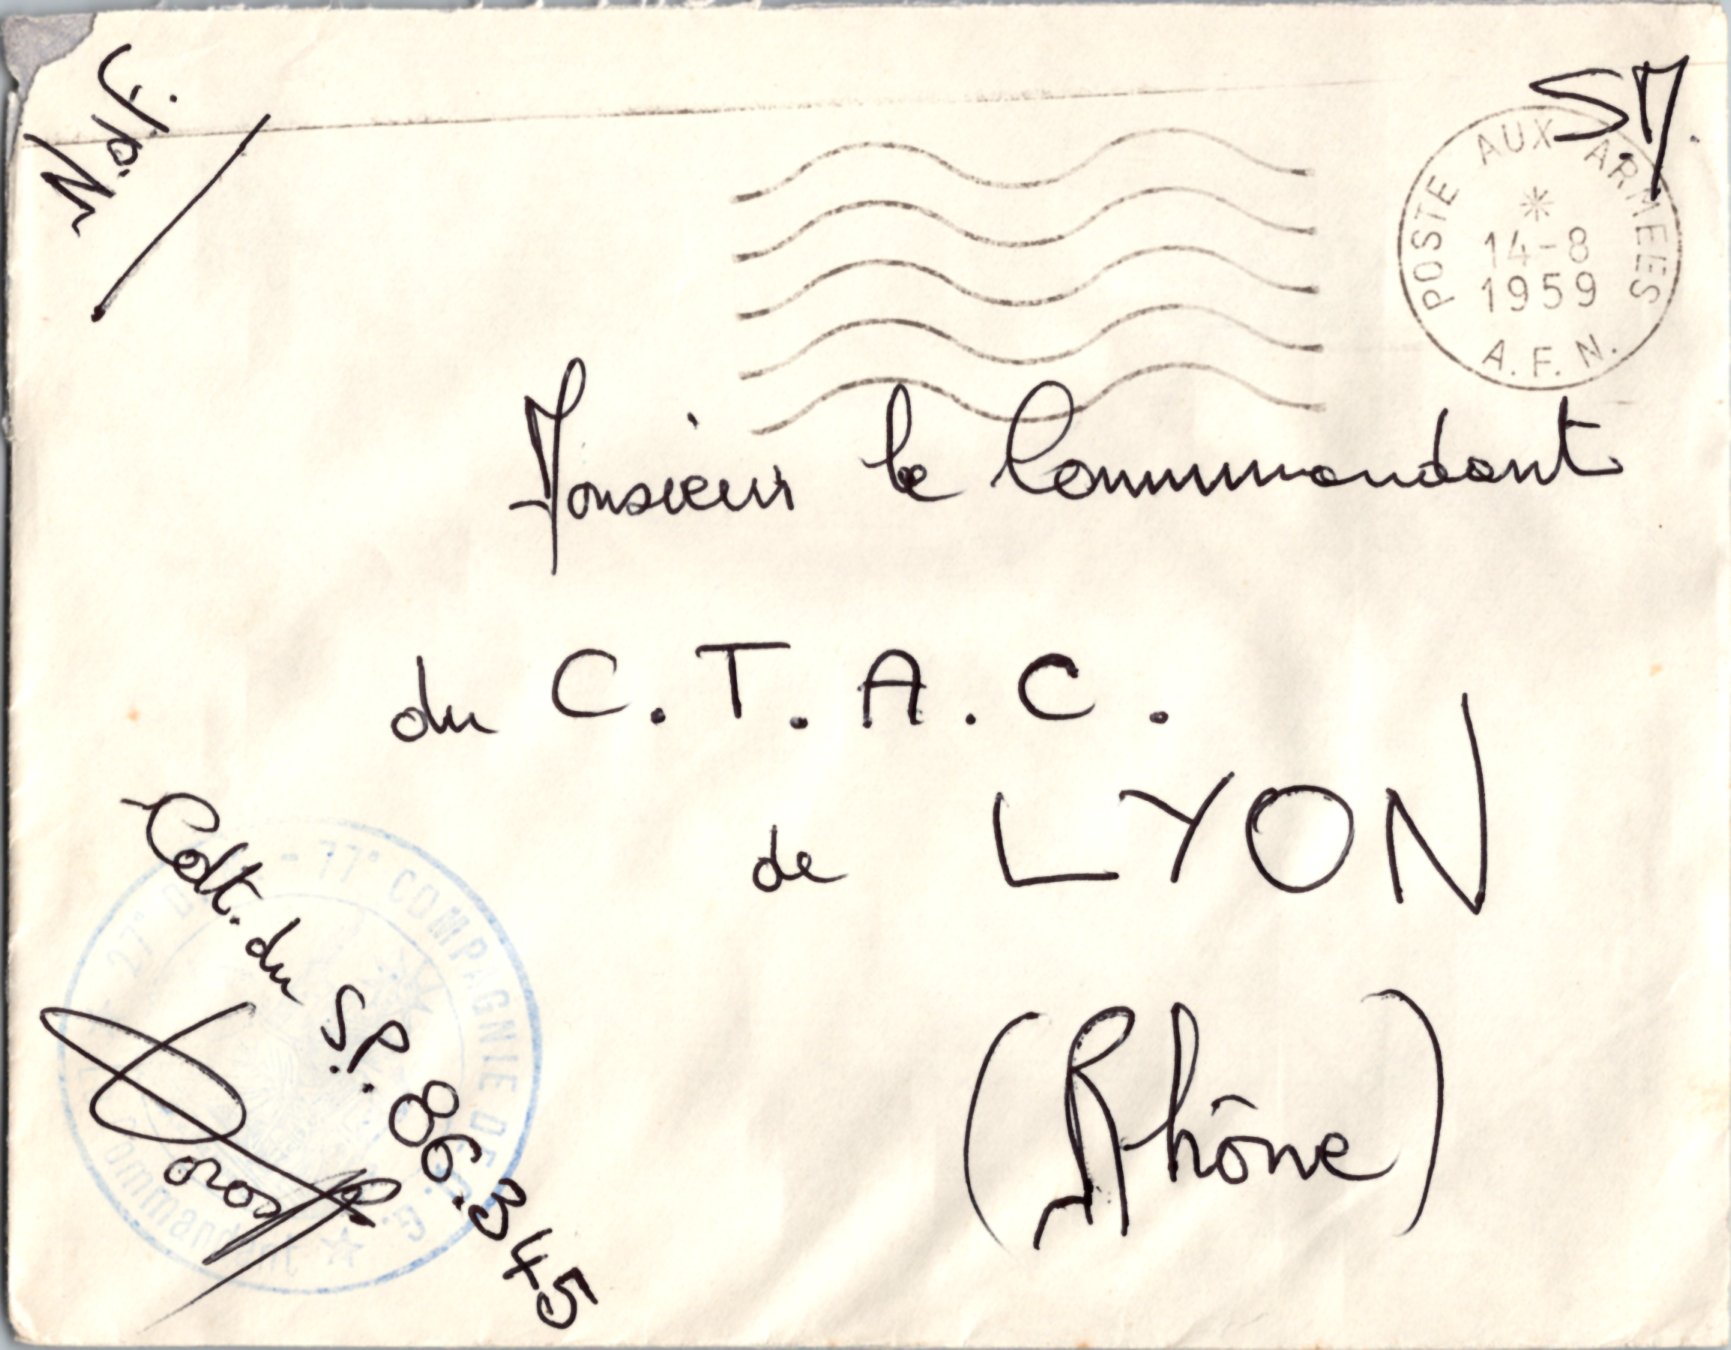 S.M.
POSTE AUX ARMEES
14-8
1959
A.F.N.
Monsieur le Commandant
du C.T.A.C.
de LYON
(Rhône)
Cdt. du S.P. 86.345
27° - 77° COMPAGNIE DE
Commandant